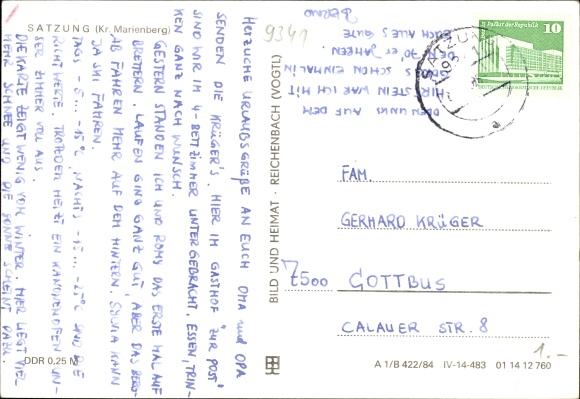 SATZUNG (Kr. Marienberg)
HERZLICHE URLAUBSGRÜßE AN EUCH OMA UND OPA
SENDEN DIE KRÜGER'S. HIER IM GASTHOF "ZUR POST"
SIND WIR IM 4-BETTZIMMER UNTERGEBRACHT. ESSEN, TRIN-
KEN GANZ NACH WUNSCH.
GESTERN STANDEN ICH UND ROMY DAS ERSTE MAL AUF
BRETTERN. LAUFEN GING GANZ GUT, ABER DAS BERG-
AB FAHREN MEHR AUF DEM HINTERN. SYLVIA KANN
JA SKI FAHREN.
TAGS -8... -15°C NACHTS -15... -25°C SIND DIE
RICHTWERTE. TROTZDEM HEIZT EIN KANONENOFEN UN-
SER ZIMMER VOLL AUS.
DIE KARTE ZEIGT WENIG VOM WINTER. HIER LIEGT VIEL
MEHR SCHNEE UND DIE SONNE SCHEINT DAZU.
OBEN LINKS AUF DEM
HIRTSTEIN WAR ICH MIT
SCHON EINMAL IN
DEN 70'ER JAHREN
EUCH ALLES GUTE
BERND
9341
BILD UND HEIMAT · REICHENBACH (VOGTL)
Palast der Republik
10
DEUTSCHE DEMOKRATISCHE REPUBLIK
SATZUNG
FAM.
GERHARD KRÜGER
7500 COTTBUS
CALAUER STR. 8
1.-
DDR 0,25 M
A 1/B 422/84 IV-14-483 01 14 12 760